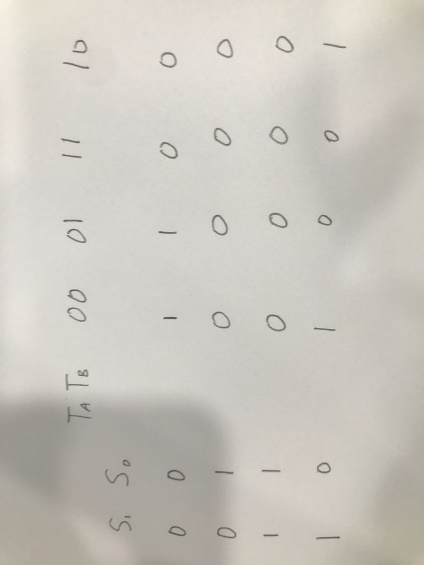 T_A T_B 00 01 11 10
S₁ S₀
0 0 1 1 0 0
0 1 0 0 0 0
1 1 0 0 0 0
1 0 1 0 0 1